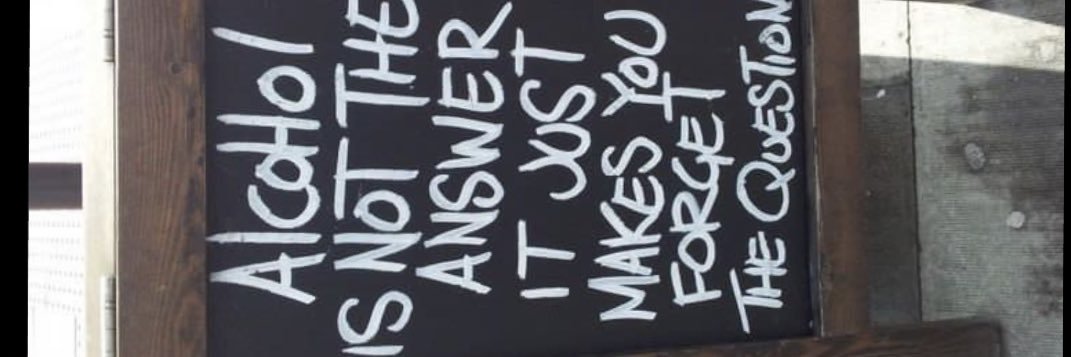 AlCoHol
IS NoT THE
ANSWER
IT JUST
MAKES YoU
FORGET
THE QUESTION